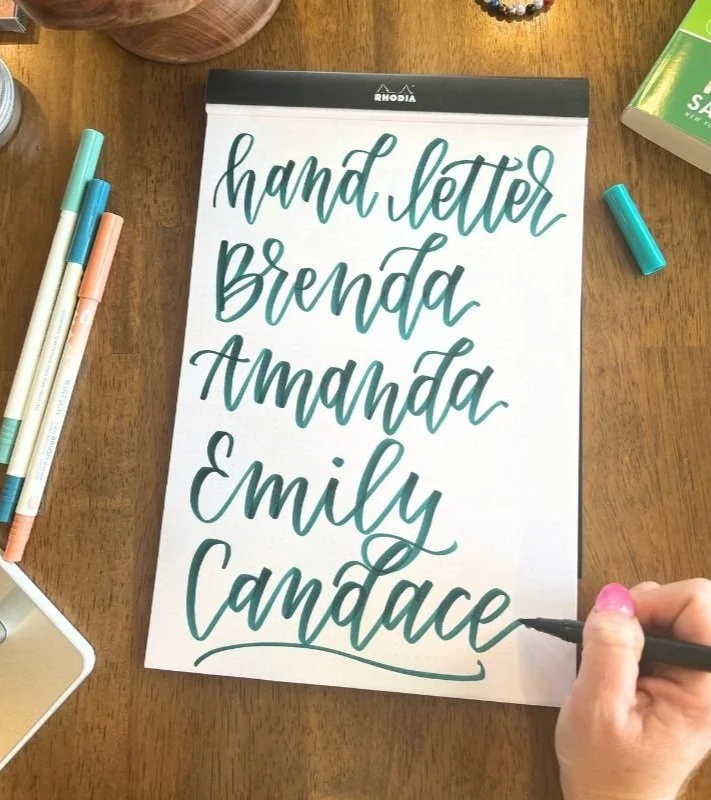 RHODIA
hand letter
Brenda
Amanda
Emily
Candace